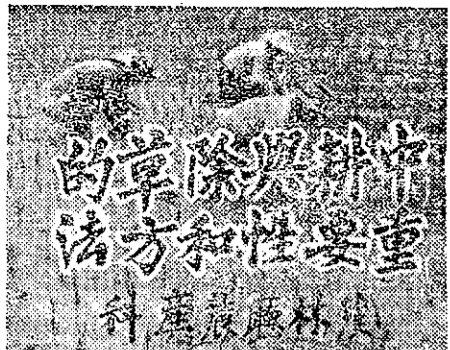 中耕與除草的
重要性和方法
農林廳農科